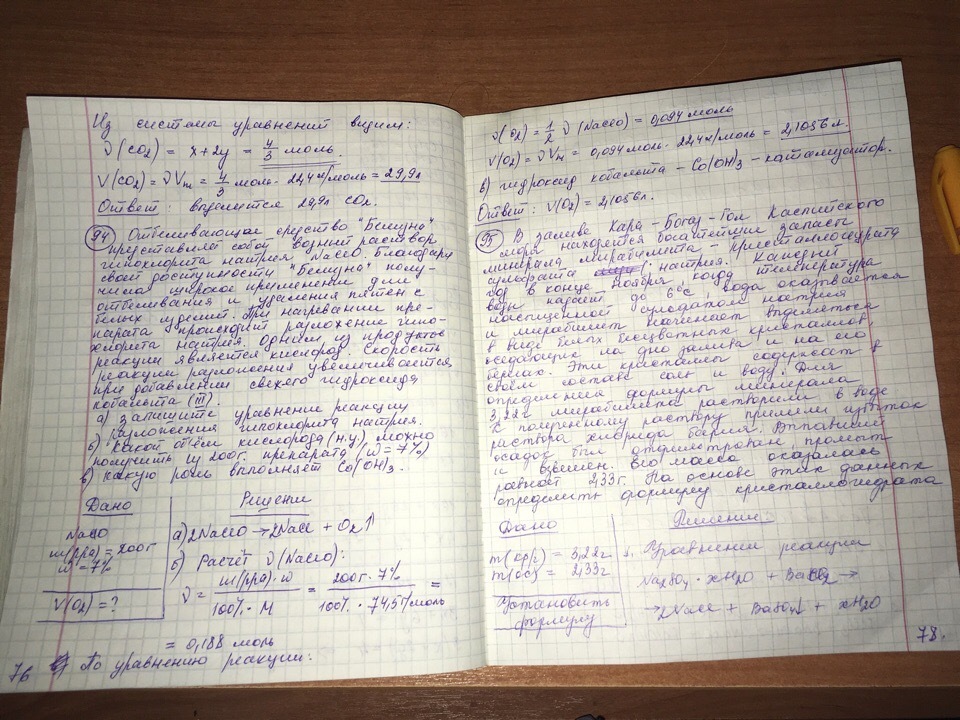 Из системы уравнений видим:
ν(CO2) = x+2y = 4/3 моль.
V(CO2) = ν Vm = 4/3 моль · 22,4 л/моль = 29,9 л
Ответ: выделится 29,9 л CO2.
94 Отбеливающее средство "Белизна"
представляет собой водный раствор
гипохлорита натрия NaClO. Благодаря
своей доступности "Белизна" полу-
чила широкое применение для
отбеливания и удаления пятен с
белых изделий. При нагревании пре-
парата происходит разложение гипо-
хлорита натрия. Одним из продуктов
реакции является кислород. Скорость
реакции разложения увеличивается
при добавлении свежего гидроксида
кобальта (III).
а) запишите уравнение реакции
разложения гипохлорита натрия.
б) какой объём кислорода (н.у.) можно
получить из 200г. препарата (w = 7%)
в) какую роль выполняет Co(OH)3.
Дано
NaClO
m(р-ра) = 200г
w = 7%
V(O2) = ?
Решение
а) 2NaClO → 2NaCl + O2↑
б) Расчёт ν(NaClO):
ν = m(р-ра)·w / 100%·M = 200г·7% / 100%·74,5г/моль =
= 0,188 моль
По уравнению реакции:
76
ν(O2) = 1/2 ν(NaClO) = 0,094 моль
V(O2) = ν Vm = 0,094 моль · 22,4 л/моль = 2,1056 л.
в) гидроксид кобальта - Co(OH)3 - катализатор.
Ответ: V(O2) = 2,1056л.
95 В заливе Кара-Богаз-Гол Каспийского
моря находятся богатейшие запасы
минерала мирабилита - кристаллогидрата
сульфата натрия. Каждый
год в конце ноября, когда температура
воды падает до 6°С вода оказывается
насыщенной сульфатом натрия
и мирабилит начинает выделяться
в виде белых бесцветных кристаллов,
оседающих на дно залива и на его
берегах. Эти кристаллы содержат в
своём составе соль и воду. Для
определения формулы минерала
3,22г мирабилита растворили в воде
К полученному раствору прилили избыток
раствора хлорида бария. Выпавший
осадок был отфильтрован, промыт
и взвешен. Его масса оказалась
равной 2,33г. На основе этих данных
определить формулу кристаллогидрата
Дано
m(кр/г) = 3,22г
m(ос) = 2,33г
Установить
формулу
Решение:
1. Уравнение реакции
Na2SO4 · xH2O + BaCl2 →
→ 2NaCl + BaSO4↓ + xH2O
78.